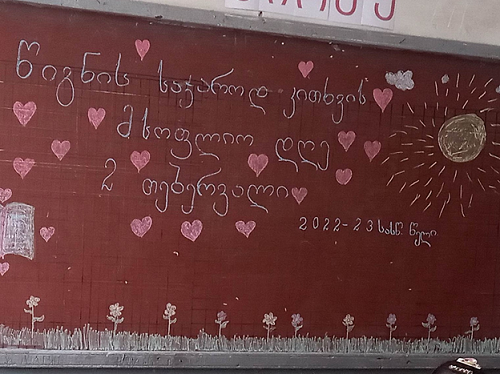 წიგნის საჯაროდ კითხვის
მსოფლიო დღე
2 თებერვალი
2022-23 სასწ. წელი